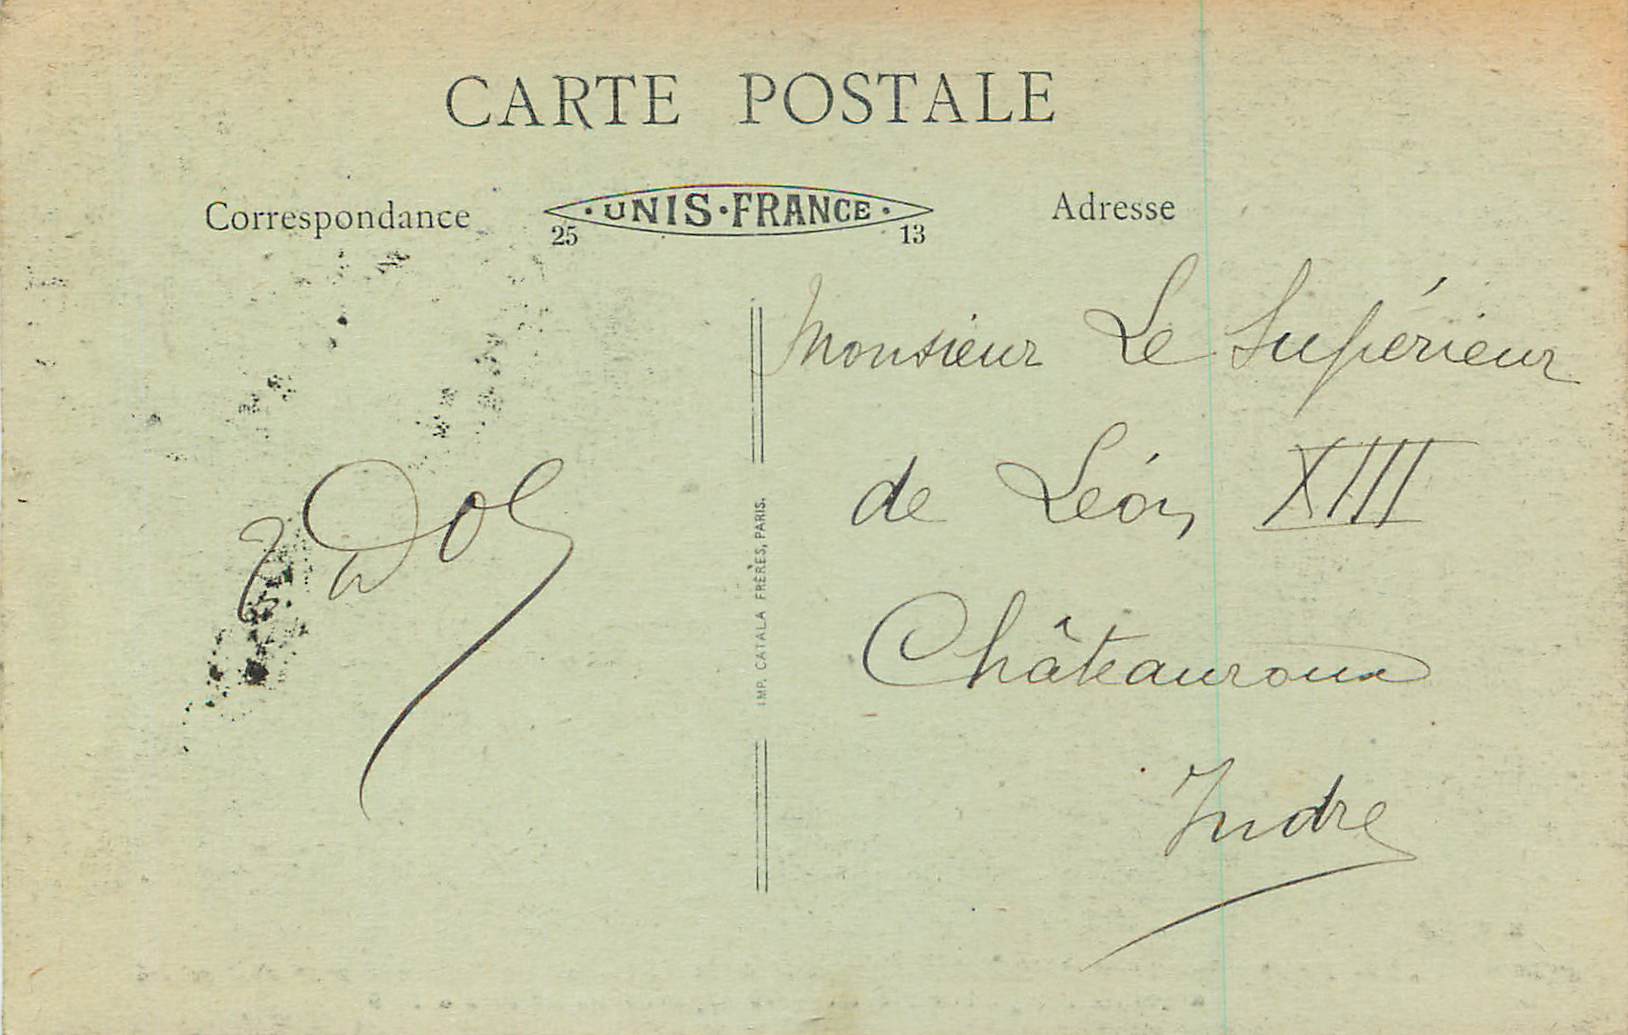 CARTE POSTALE
Correspondance
· UNIS · FRANCE ·
25 13
Adresse
Monsieur Le Supérieur
de Léon XIII
Châteauroux
Indre
IMP. CATALA FRÈRES, PARIS.